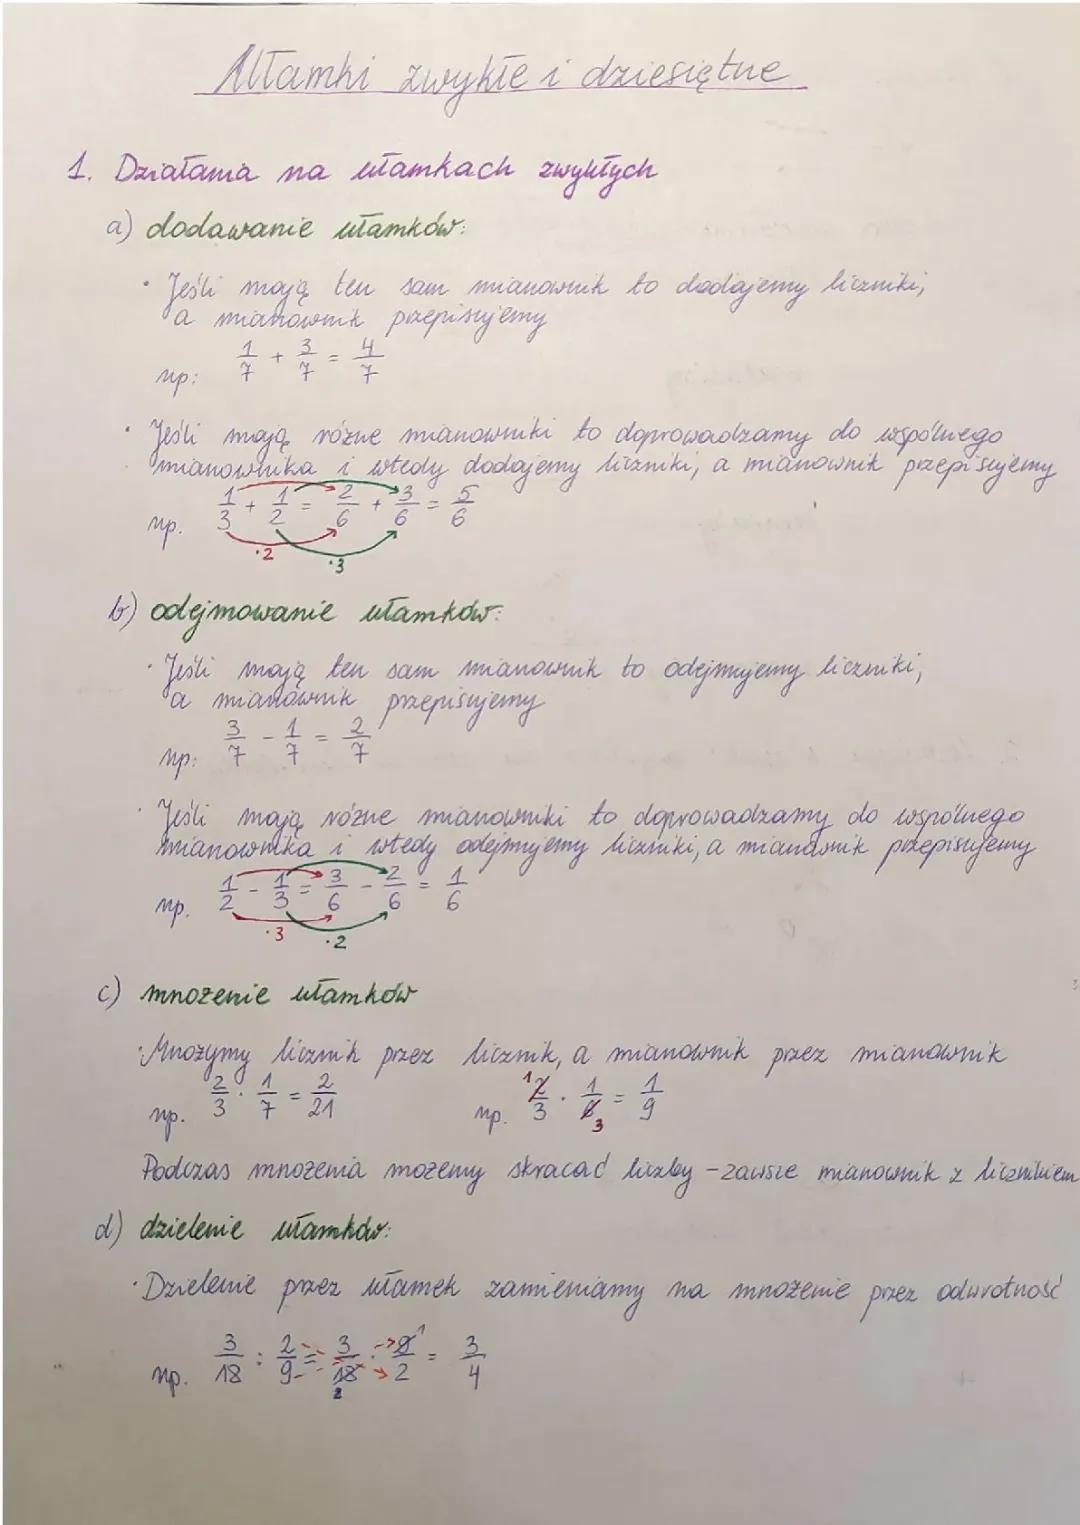 Ułamki zwykłe i dziesiętne
1. Działania na ułamkach zwykłych
a) dodawanie ułamków:
· Jeśli mają ten sam mianownik to dodajemy liczniki,
a mianownik przepisujemy
np: 1/7 + 3/7 = 4/7
· Jeśli mają różne mianowniki to doprowadzamy do wspólnego
mianownika i wtedy dodajemy liczniki, a mianownik przepisujemy
np. 1/3 + 1/2 = 2/6 + 3/6 = 5/6
·2 ·3
b) odejmowanie ułamków:
· Jeśli mają ten sam mianownik to odejmujemy liczniki,
a mianownik przepisujemy
np: 3/7 - 1/7 = 2/7
· Jeśli mają różne mianowniki to doprowadzamy do wspólnego
mianownika i wtedy odejmujemy liczniki, a mianownik przepisujemy
np. 1/2 - 1/3 = 3/6 - 2/6 = 1/6
·3 ·2
c) mnożenie ułamków
· Mnożymy licznik przez licznik, a mianownik przez mianownik
np. 2/3 · 1/7 = 2/21 np. 1 2/3 · 1/6 3 = 1/9
Podczas mnożenia możemy skracać liczby - zawsze mianownik z licznikiem
d) dzielenie ułamków:
· Dzielenie przez ułamek zamieniamy na mnożenie przez odwrotność
np. 3/18 : 2/9 = 3/18 2 · 9 1/2 = 3/4